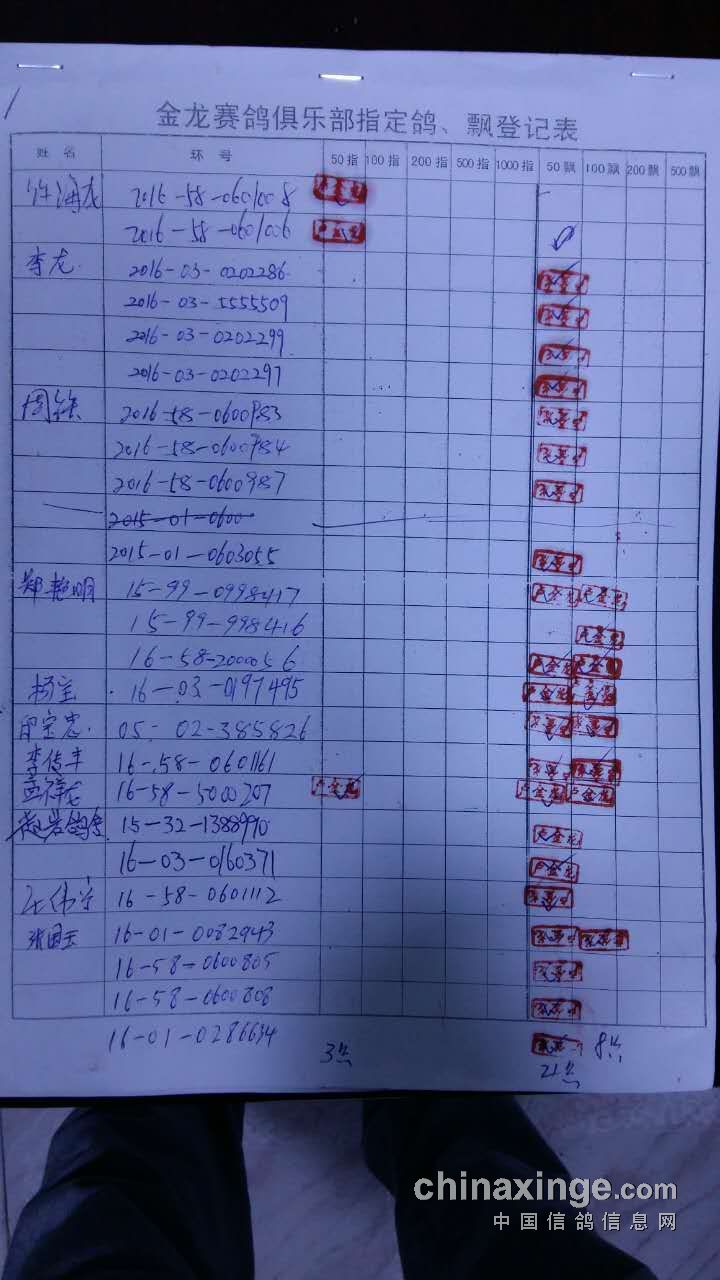 金龙赛鸽俱乐部指定鸽、飘登记表
姓名 环号 50指 100指 200指 500指 1000指 50飘 100飘 200飘 500飘
许海龙 2016-58-0601008
2016-58-0601006
李龙 2016-03-0202286
2016-03-5555509
2016-03-0202299
2016-03-0202297
2016-58-0600983
2016-58-0600984
2016-58-0600987
2015-01-0600
2015-01-0603055
郑艳明 15-99-0998417
15-99-998416
16-58-2000056
杨宝 16-03-0197495
印宝忠 05-02-385826
李传丰 16-58-0601161
孟祥龙 16-58-5000207 卢金龙 卢金龙 卢金龙
15-32-1388990
16-03-0160371
16-58-0601112
张国玉 16-01-0082943
16-58-0600805
16-58-0600808
16-01-0286634
3 21 8
chinaxinge.com
中国信鸽信息网